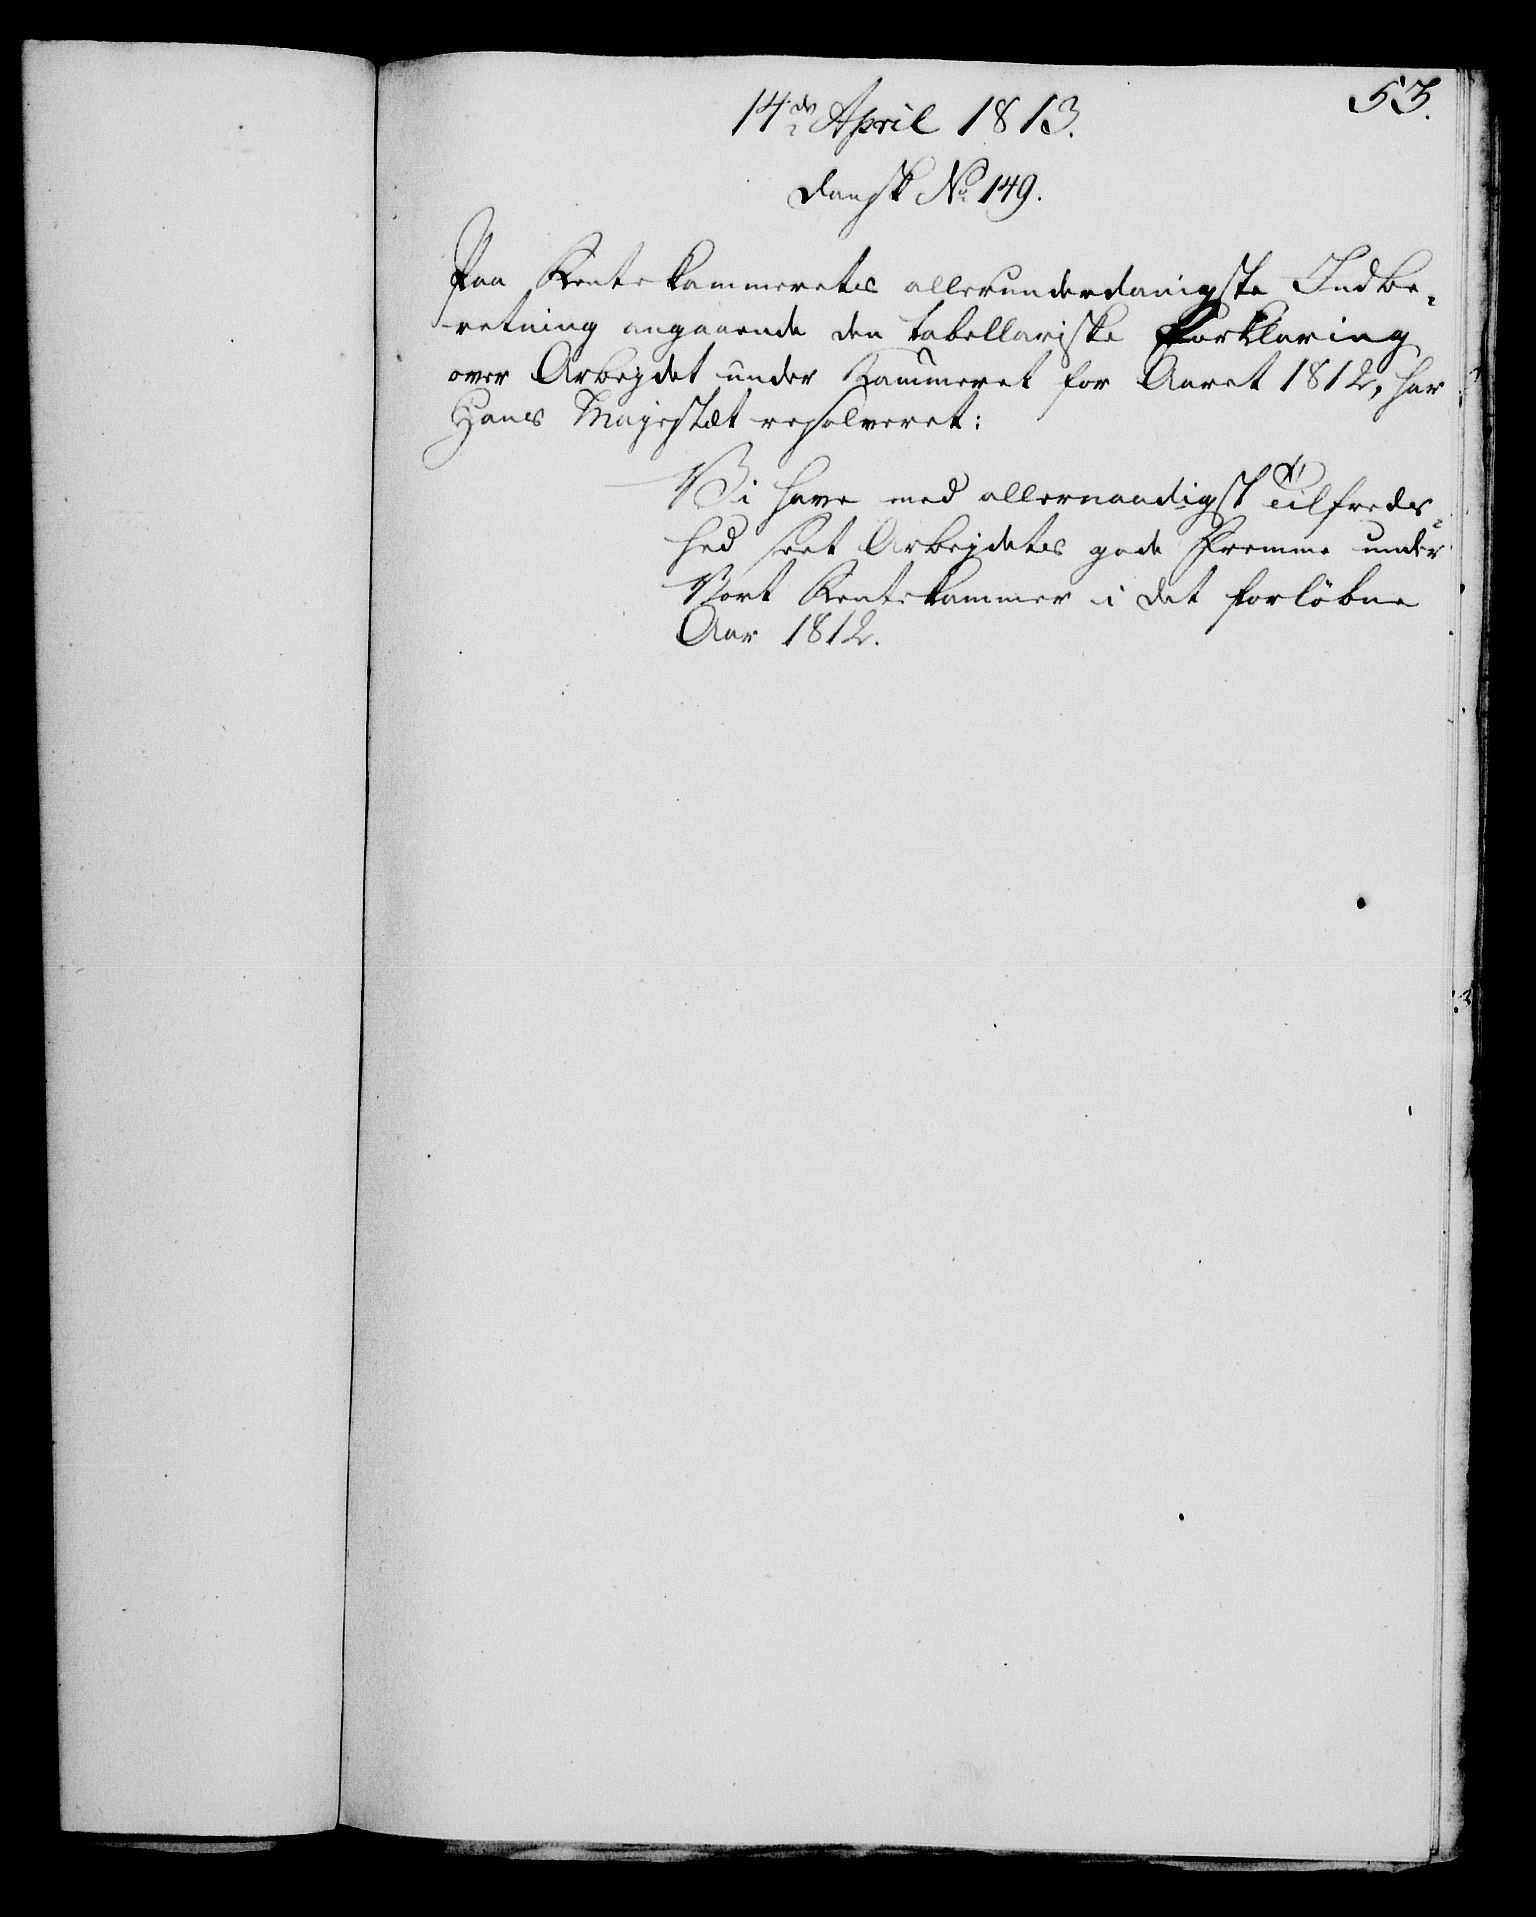 53.
14de April 1813.
Dansk No 149.
Paa Rentekammerets allerunderdanigste Indbe-
retning angaaende den tabellariske Forklaring
over Arbejdet under Kammeret for Aaret 1812, har
Hans Majestæt resolveret:
Vi have med allernaadigst Tilfreds-
hed seet Arbejdets gode Fremme under
Vort Rentekammer i det forløbne
Aar 1812.